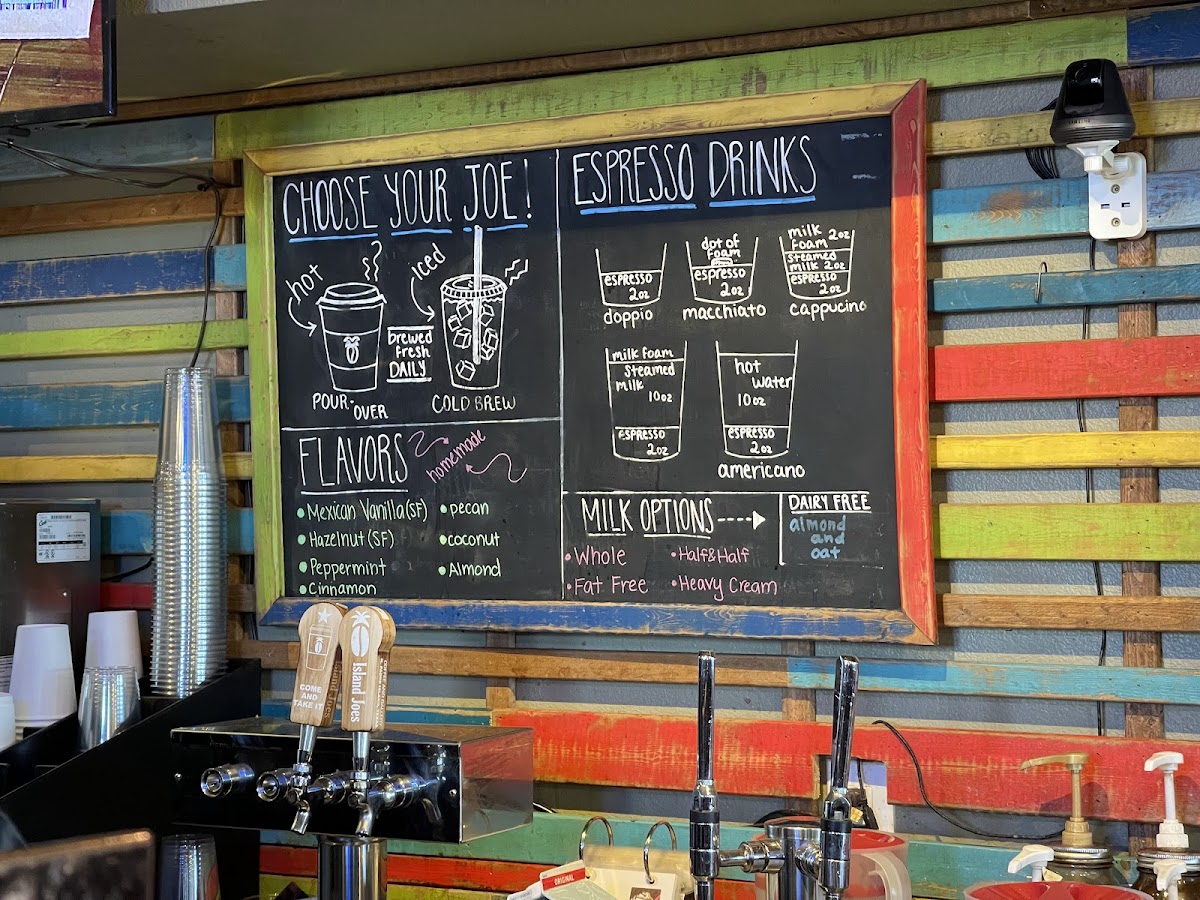 CHOOSE YOUR JOE!
hot
Iced
brewed
Fresh
DAILY
POUR-OVER
COLD BREW
FLAVORS
homemade
Mexican Vanilla (SF)
Hazelnut (SF)
Peppermint
Cinnamon
pecan
coconut
Almond
ESPRESSO DRINKS
ESPRESSO
2oz
doppio
dot of
foam
espresso
2oz
macchiato
milk
foam 2oz
steamed
milk 2oz
ESPRESSO
2oz
cappucino
milk foam
steamed
milk
10oz
ESPRESSO
2oz
hot
water
10oz
ESPRESSO
2oz
americano
MILK OPTIONS
Whole
Fat Free
Half&Half
Heavy Cream
DAIRY FREE
almond
and
oat
COME AND
TAKE IT
Island Joes
ORIGINAL